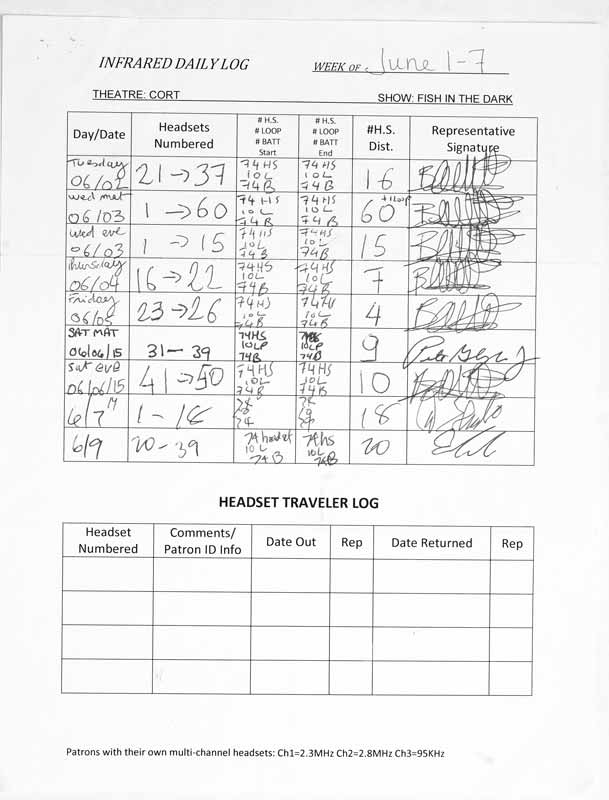 INFRARED DAILY LOG WEEK OF: June 1-7
THEATRE: CORT SHOW: FISH IN THE DARK
Day/Date Headsets Numbered # H.S. # LOOP # BATT Start # H.S. # LOOP # BATT End #H.S. Dist. Representative Signature
Tuesday 06/02 21 → 37 74HS 10L 74B 74HS 10L 74B 16
Wed mat 06/03 1 → 60 74HS 10L 74B 74HS 10L 74B 60 +1 loop
Wed eve 06/03 1 → 15 74HS 10L 74B 74HS 10L 74B 15
Thursday 06/04 16 → 22 74HS 10L 74B 74HS 10L 74B 7
Friday 06/05 23 → 26 74HS 10L 74B 74HS 10L 74B 4
SAT MAT 06/06/15 31 - 39 74HS 10LP 74B 74HS 10LP 74B 9
Sat eve 06/06/15 41 → 50 74HS 10L 74B 74HS 10L 74B 10
6/7 M 1 - 18 74 74 18
6/9 20 - 39 74 headset 10L 74B 74hs 10L 74B 20
HEADSET TRAVELER LOG
Headset Numbered Comments/ Patron ID Info Date Out Rep Date Returned Rep
Patrons with their own multi-channel headsets: Ch1=2.3MHz Ch2=2.8MHz Ch3=95KHz